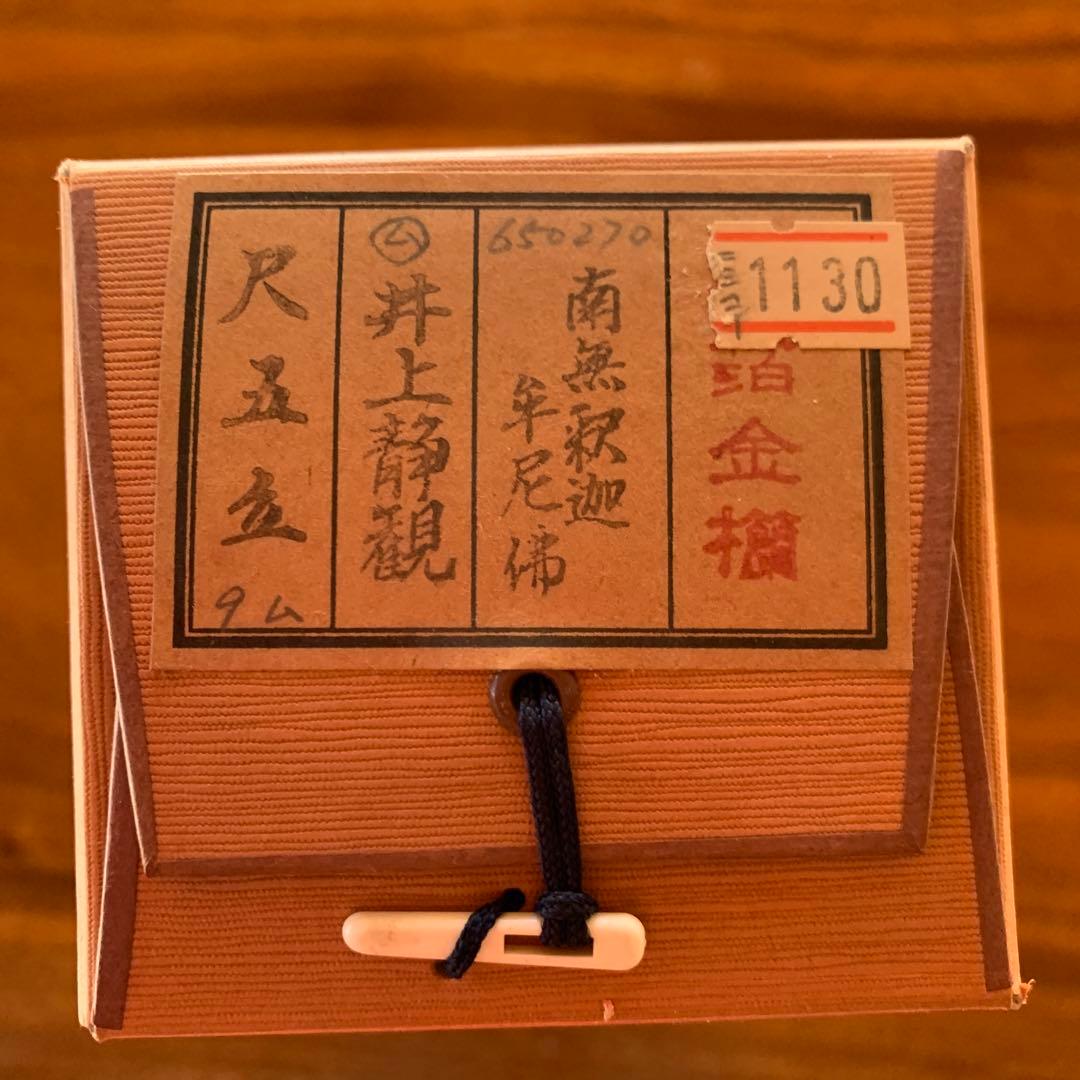 1130
箔金襴
650270
南無釈迦
牟尼佛
㋰
井上静観
尺五立
9ム